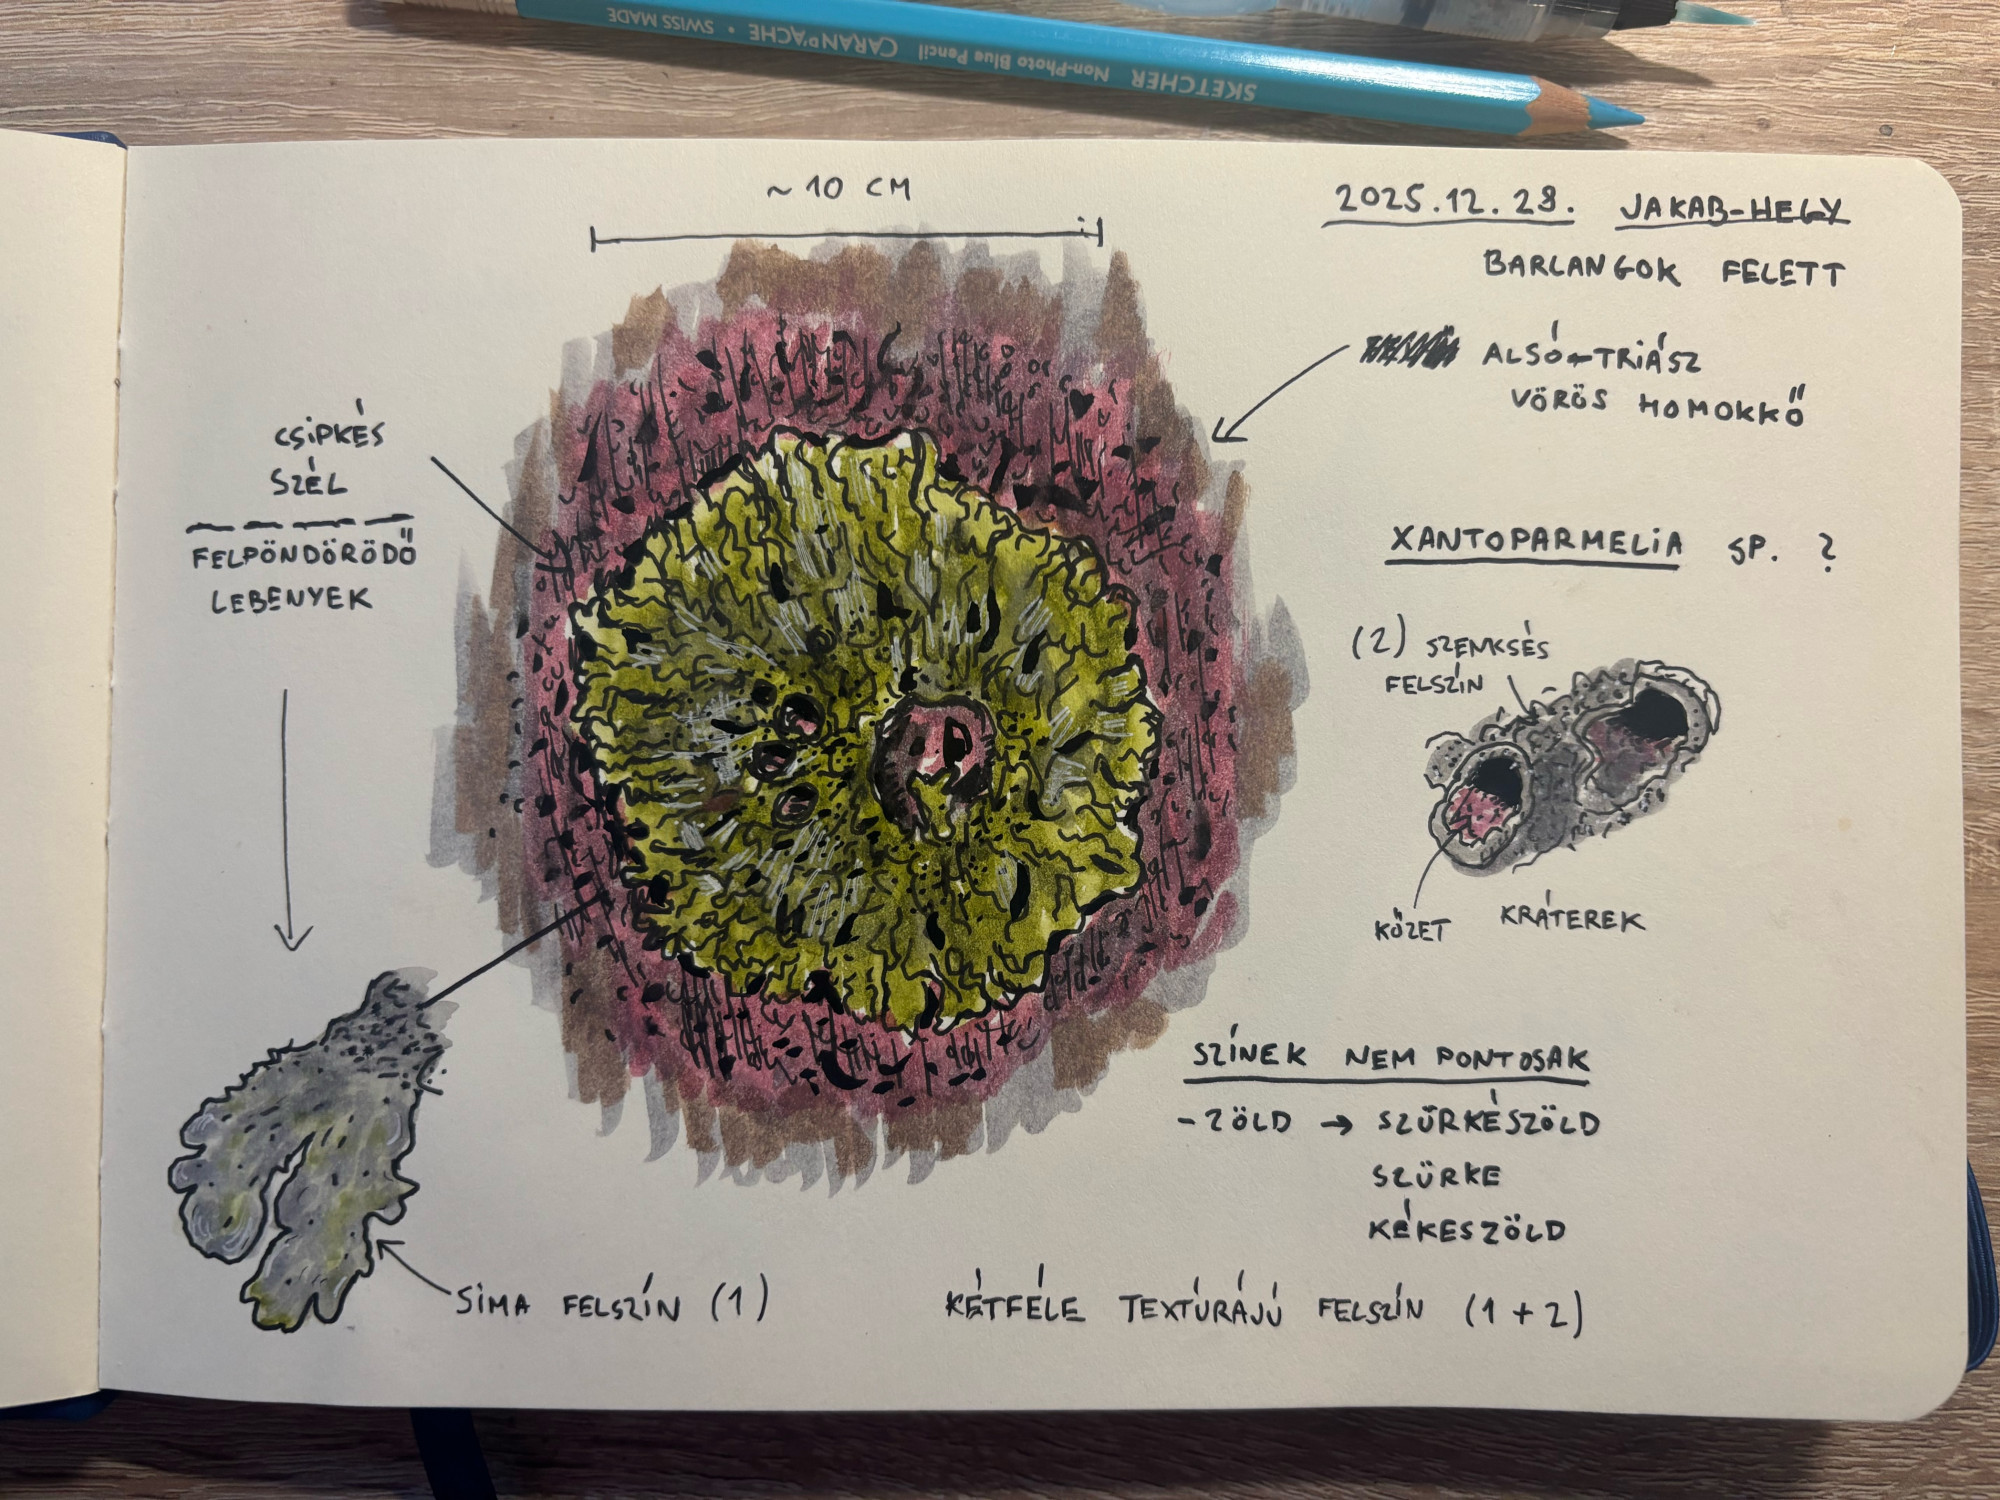 SKETCHER Non-Photo Blue Pencil CARAN D'ACHE • SWISS MADE
~ 10 CM
2025.12.28. JAKAB-HEGY
BARLANGOK FELETT
ALSÓ-TRIÁSZ
VÖRÖS HOMOKKŐ
CSIPKÉS
SZÉL
FELPÖNDÖRÖDŐ
LEBENYEK
XANTOPARMELIA SP. ?
(2) SZEMCSÉS
FELSZÍN
KŐZET KRÁTEREK
SZÍNEK NEM PONTOSAK
- ZÖLD → SZÜRKÉSZÖLD
SZÜRKE
KÉKESZÖLD
SIMA FELSZÍN (1)
KÉTFÉLE TEXTÚRÁJÚ FELSZÍN (1 + 2)